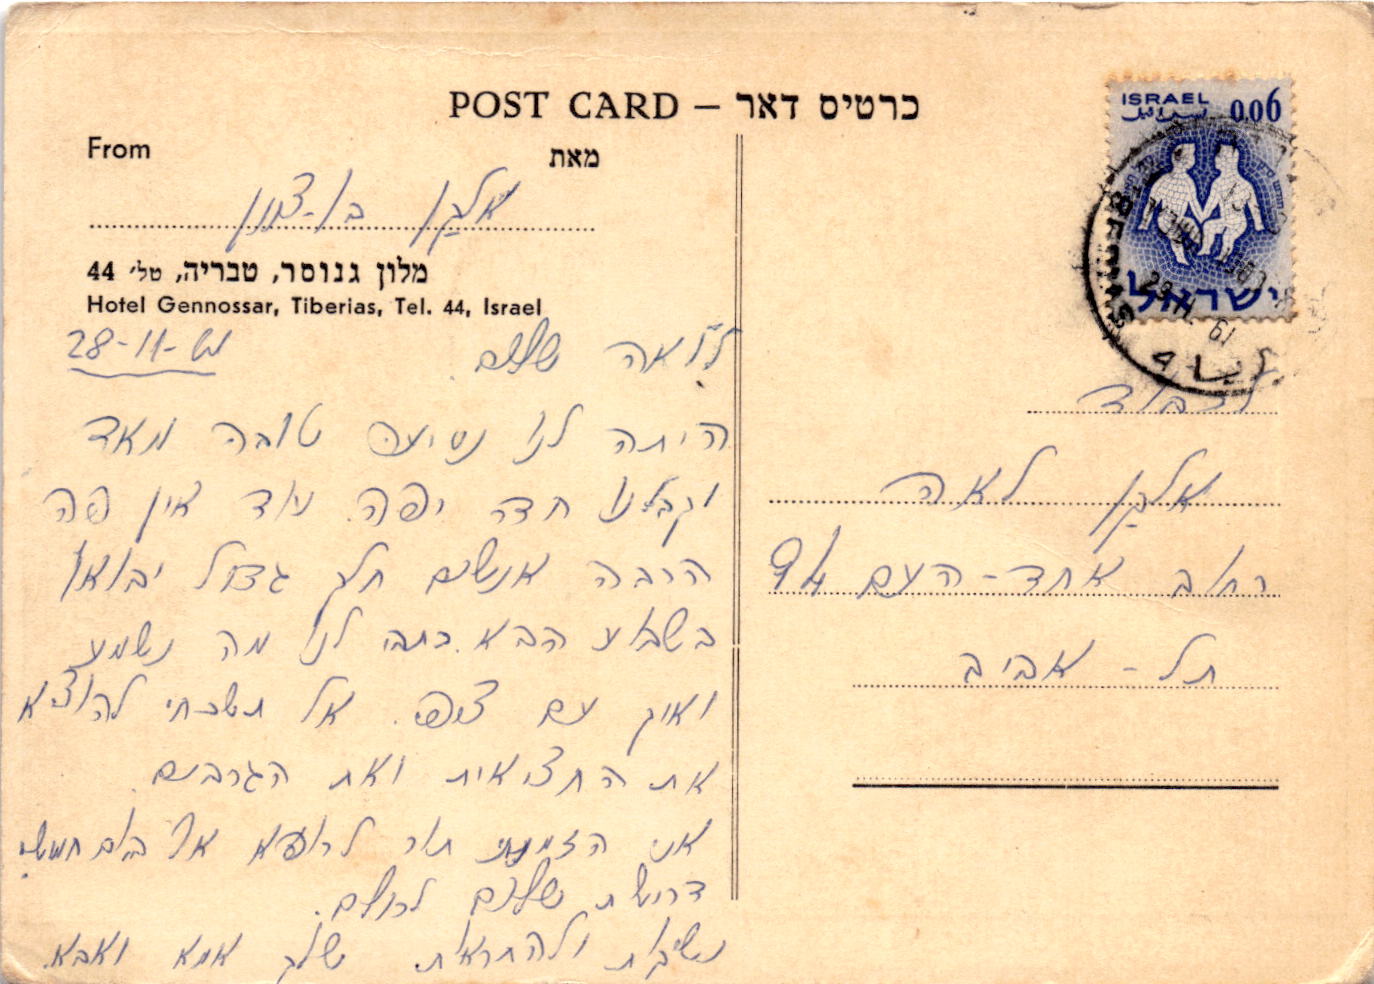 POST CARD — כרטיס דאר
From
מאת
אלקן בן-ציון
מלון גנוסר, טבריה, טל׳ 44
Hotel Gennossar, Tiberias, Tel. 44, Israel
28-11-61
ללאה שלום.
היתה לנו נסיעה טובה מאד
וקבלנו חדר יפה. עוד אין פה
הרבה אנשים חלק גדול יבואו
בשבוע הבא. כתבי לנו מה נשמע
ואיך עם ציפי. אל תשכחי להוציא
את החצאית ואת הגרבים
אני הזמנתי תור לרופא ביום חמשי
דרישת שלום לכולם.
נשיקות ולהתראות שלך אמא ואבא.
ISRAEL 0.06
اسرائيل
ישראל
לכבוד
אלקן לאה
רחוב אחד-העם 94
תל-אביב